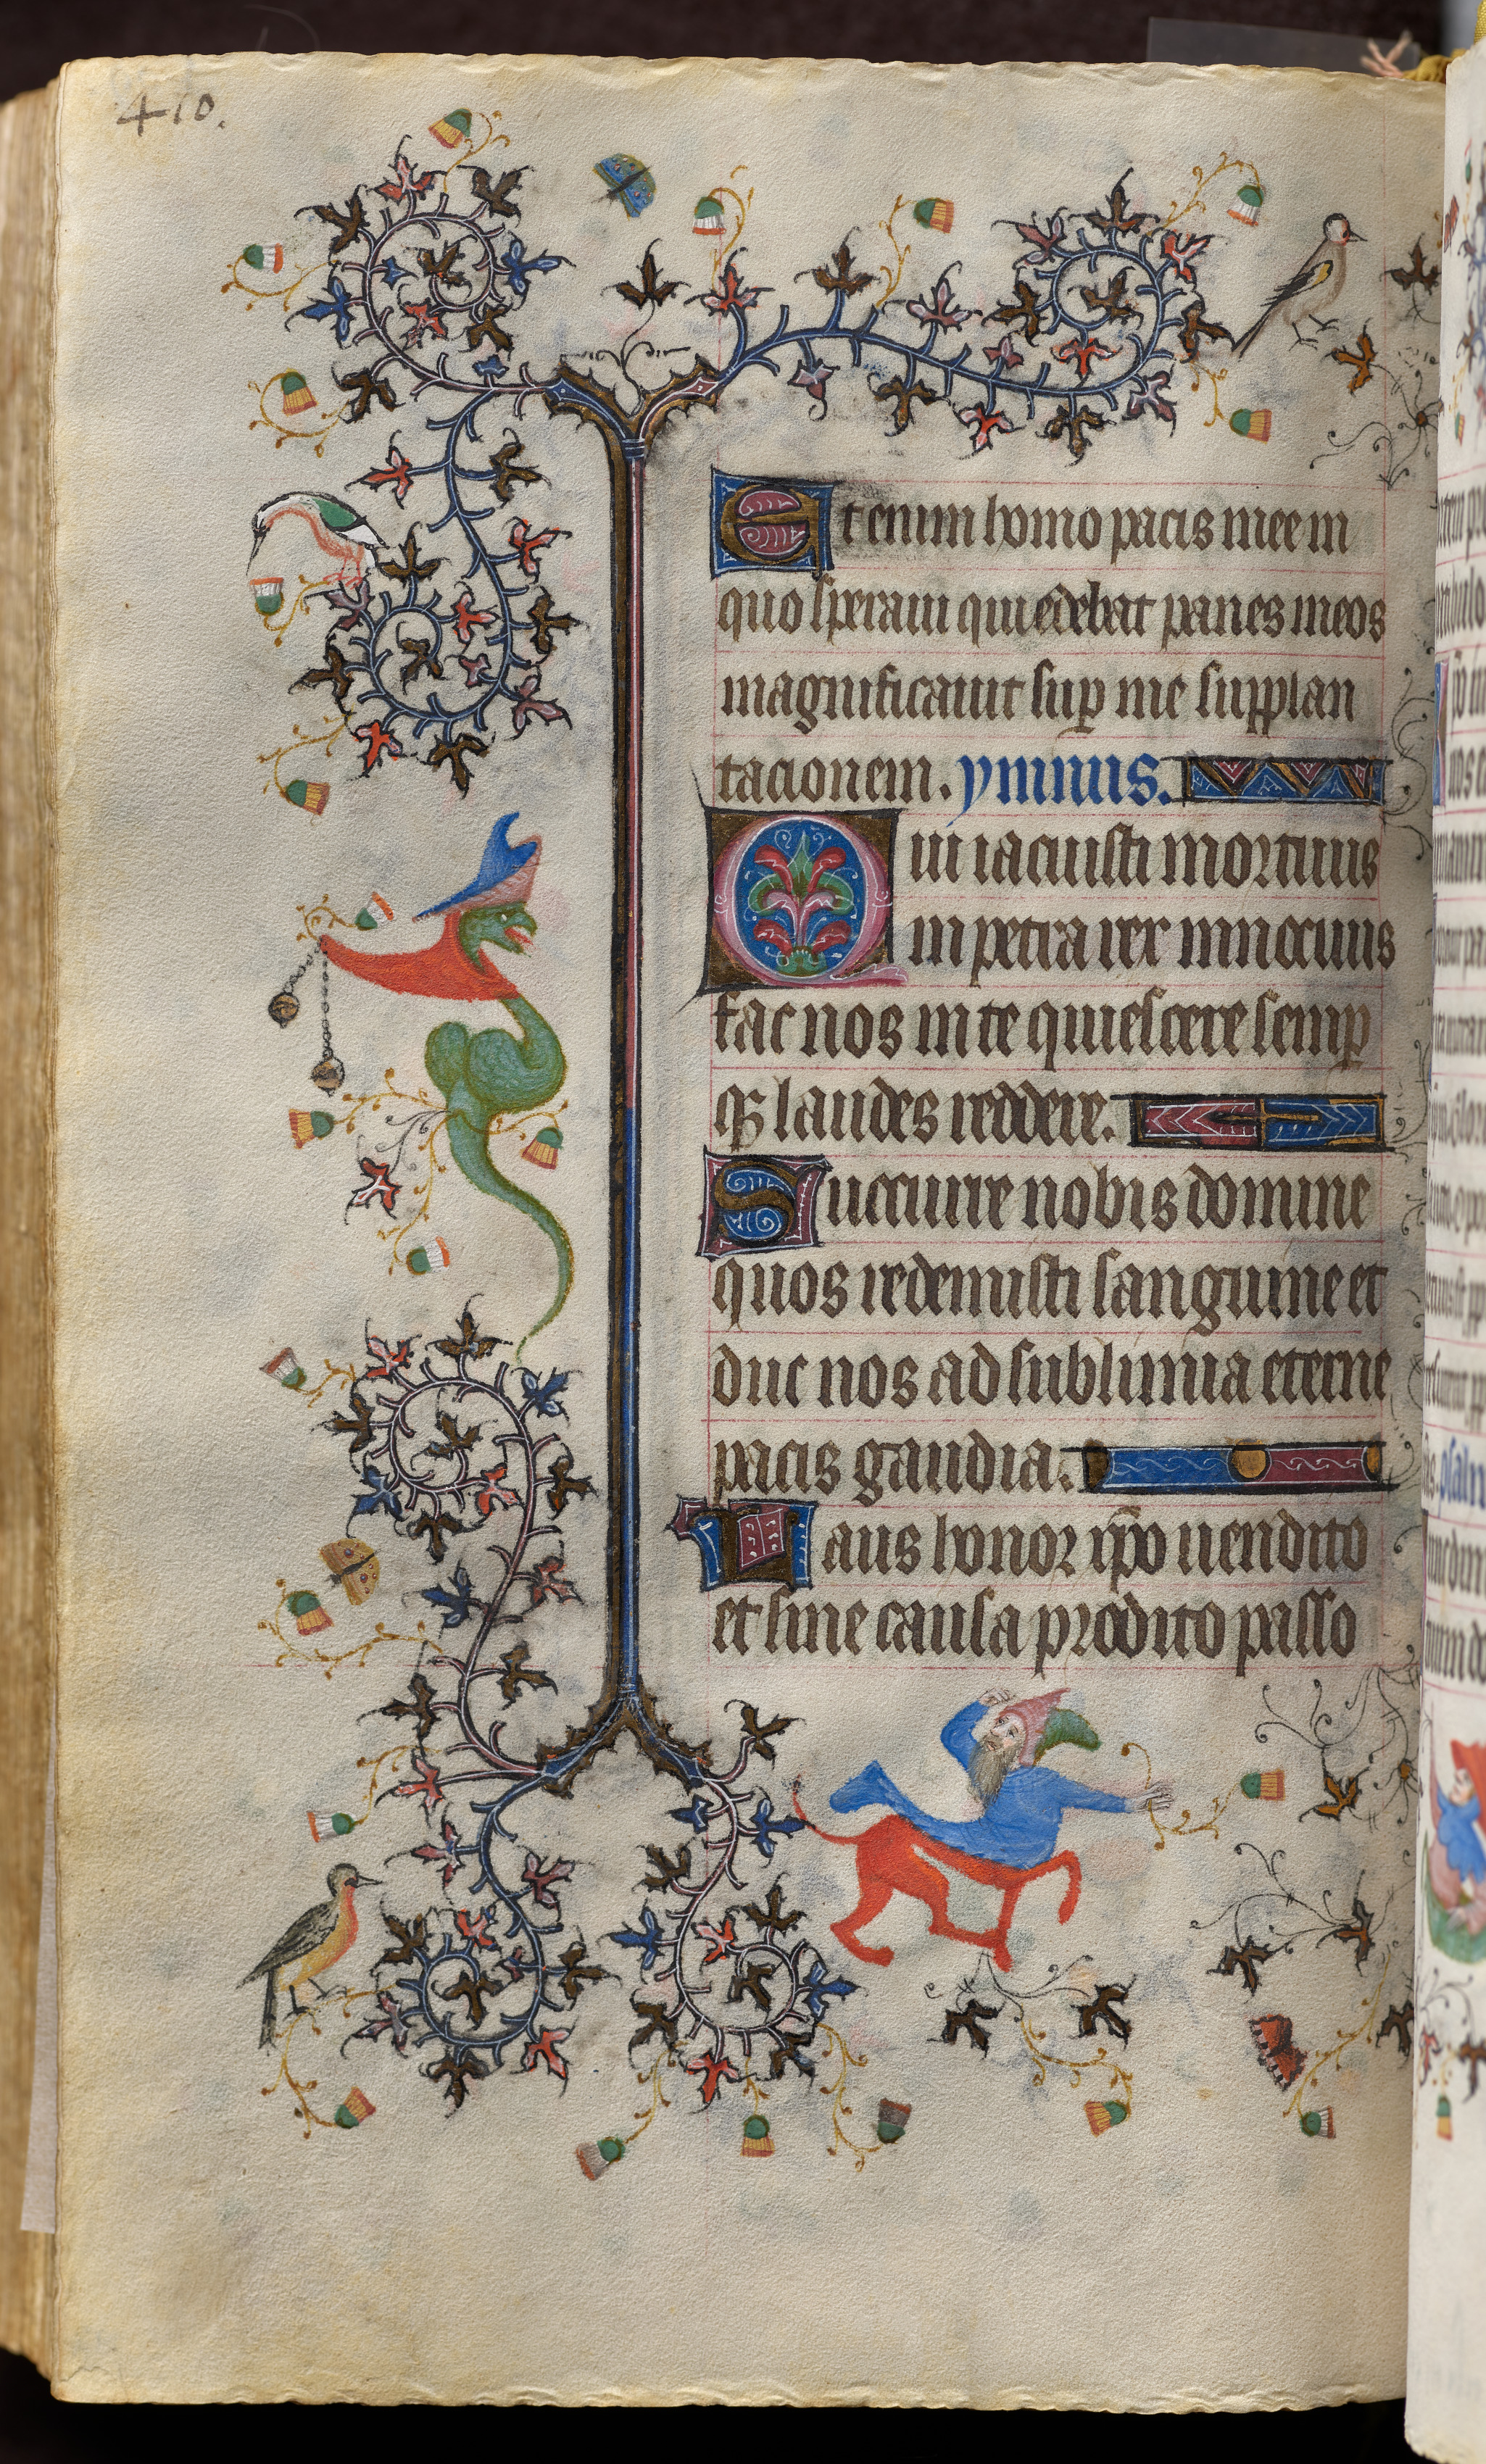 410.
Et enim homo pacis mee in
quo speraui qui edebat panes meos
magnificauit sup me supplan
tacionem. ymnus.
Qui iacuisti mortuus
in petra rex innocuus
fac nos in te quiescere semp
qꝫ laudes reddere.
Succurre nobis domine
quos redemisti sanguine et
duc nos ad sublimia eterne
pacis gaudia.
Laus honor xp̄o uendito
et sine causa prodito passo